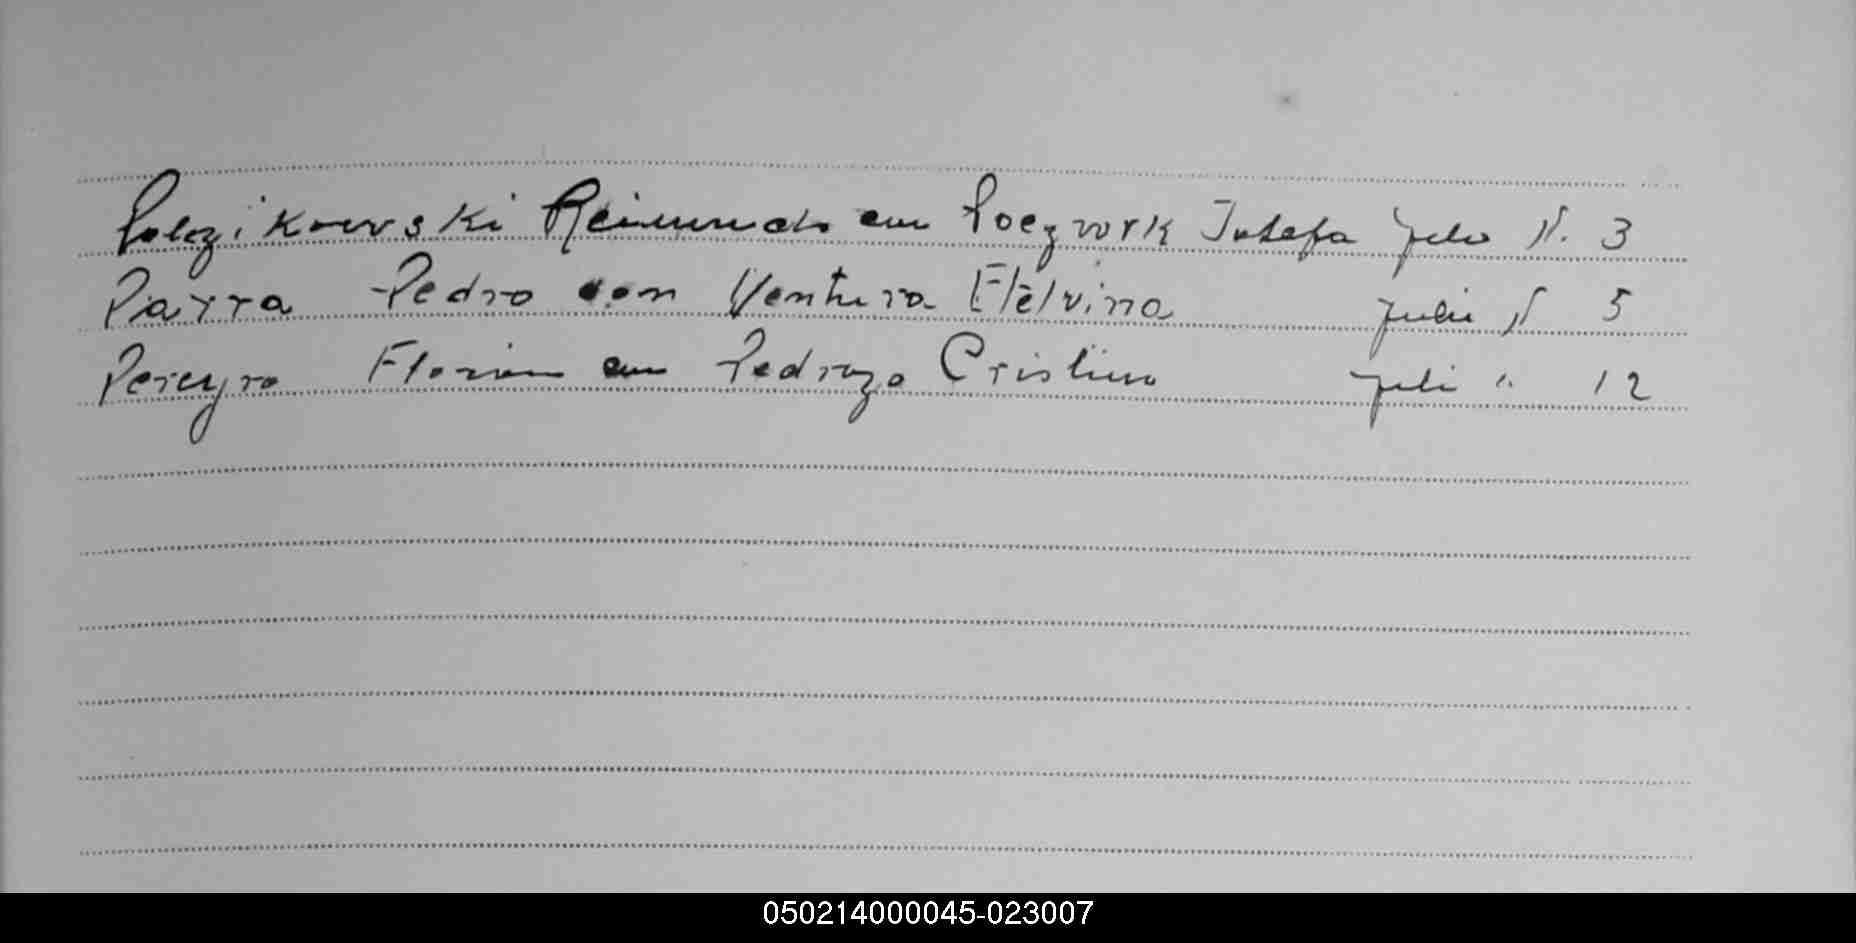 Polezikowski Reimundo con Poczwork Josefa Julio N. 3
Parra Pedro con Ventura Etèlvina Julio N 5
Pereyra Florian con Pedrozo Cristina Juli ". 12
050214000045-023007